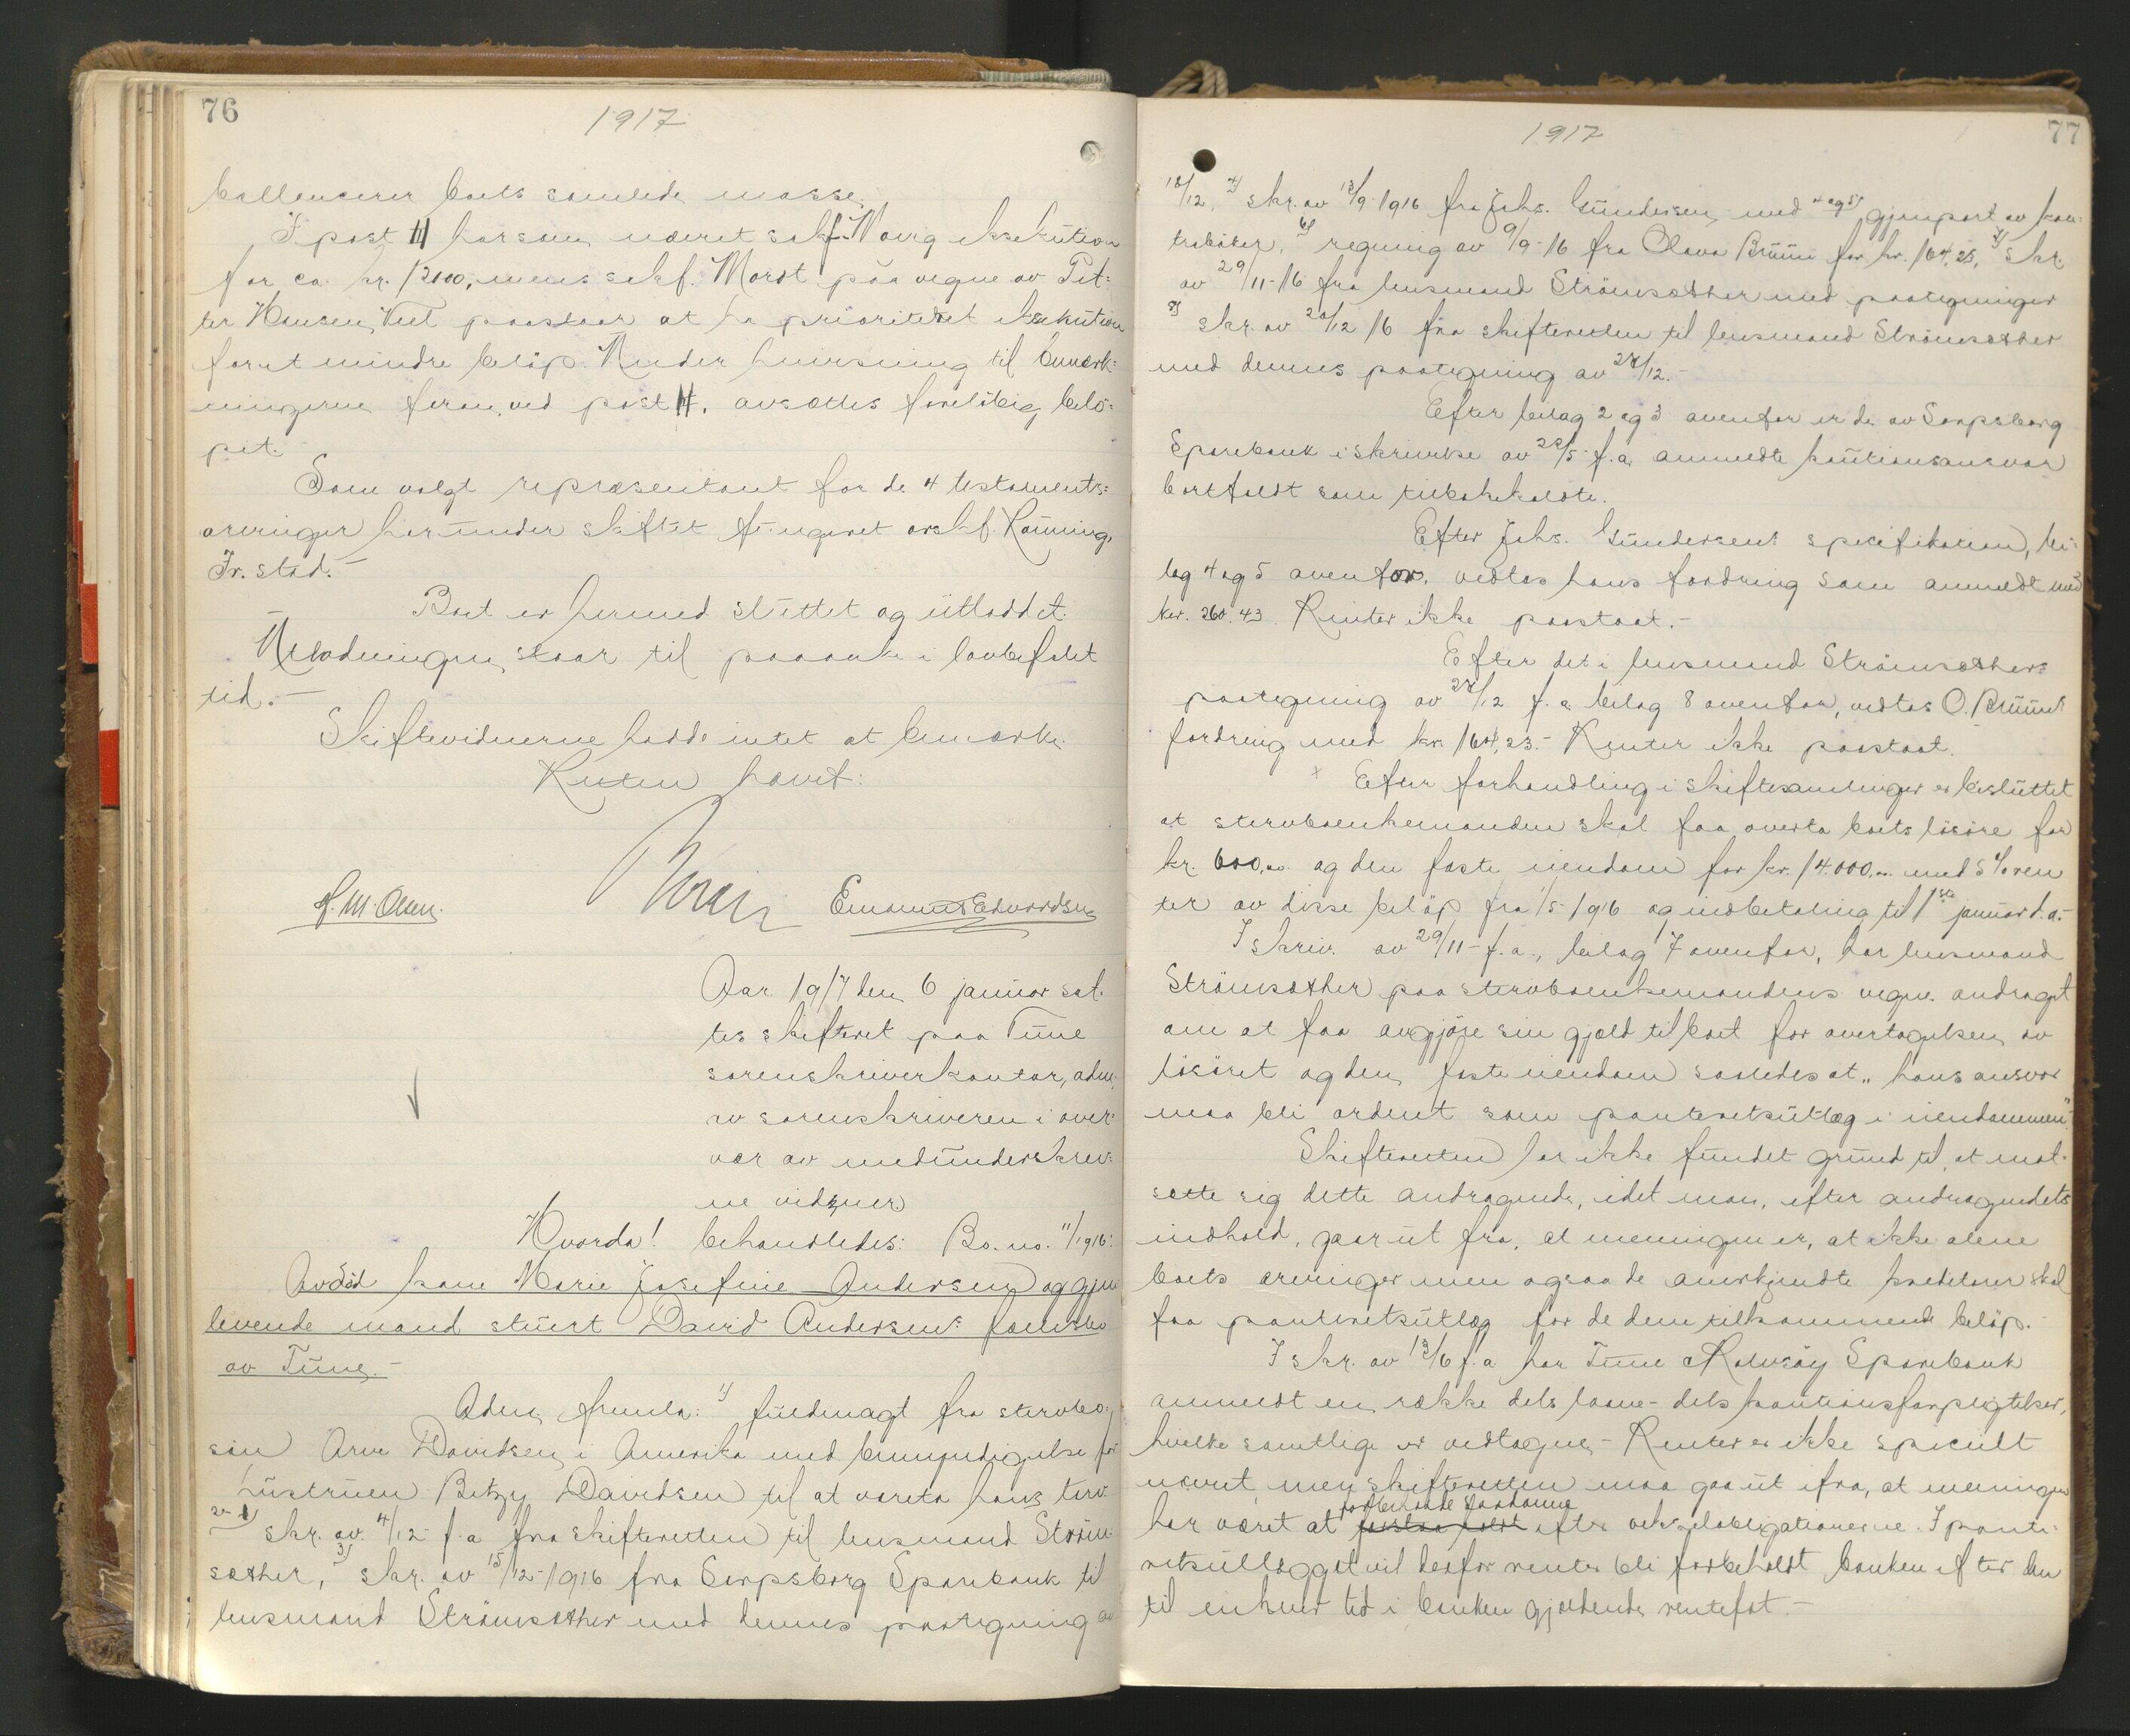 76
1917
ballencerer boets samlede masse.
I post 11 har som nævnt sakf. Vaarg eksekution
for ca. kr. 12000, mens sakf. Mordt paa vegne av Pet-
ter Hansen, Veel paastaar at ha prioritetet eksekution
for et mindre beløp. Under henvisning til bemærk-
ningerne foran, ved post 11. avsættes foreløbig belø-
pet.
Som valgt repræsentant for de 4 testaments-
arvinger har under skiftet fungeret orskf. Rønning,
Fr.stad.-
Boet er hermed sluttet og utloddet.
Utlodningen staar til paaanke i lovbefalet
tid.-
Skiftevidnerne hadde intet at bemærke.
Retten hævet:
H. M. Olsen. Emanuel Edvardsen
Aar 1917 den 6 januar sat-
tes skifteret paa Tune
sorenskriverkontor, adm.
av sorenskriveren i over-
vær av medunderskrev-
ne vidner
Hvorda! behandledes: Bo. no. 11/1916:
Avdød kone Marie Josefine Andersen og gjen-
levende mand stuert David Andersens fællesbo
av Tune.-
Adm. fremla: 1) fuldmagt fra stervbo-
søn Arve Davidsen i Amerika med bemyndigelse for
hustruen Betzy Davidsen til at vareta hans tarv
2) skr. av 4/12- f.a fra skifteretten til lensmand Strøm-
sæther, 3) skr. av 15/12-1916 fra Sarpsborg Sparebank til
lensmand Strømsæther med dennes paategning av
77
1917
18/12, 4) skr. av 18/9-1916 fra Johs. Gundersen med 4 og 5) gjenpart av kon-
trabøker, 6) regning av 9/9-16 fra Olava Bruun for kr. 164,23, 7) skr.
av 29/11-16 fra lensmand Strømsæther med paategninger
8) skr. av 20/12 16 fra skifteretten til lensmand Strømsæther
med dennes paategning av 27/12.-
Efter bilag 2 og 3 ovenfor er de av Sarpsborg
Sparebank i skrivelse av 22/5- f.a. anmeldte kautionsansvar
bortfaldt som tilbakekaldte.
Efter Johs. Gundersens specifikation, bi-
lag 4 og 5 ovenfor, vedtas hans fordring som anmeldt med
kr. 260.43. Renter ikke paastaat.-
Efter det i lensmand Strømsæthers
paategning av 27/12 f.a bilag 8 ovenfor, vedtas O. Bruuns
fordring med kr. 164,23.- Renter ikke paastaat.
Efter forhandling i skiftesamlinger er besluttet
at stervboenkemanden skal faa overta boets løsøre for
kr. 600,00 og den faste eiendom for kr. 14.000,00 med 5 % ren-
ter av disse beløp fra 1/5-1916 og indbetaling til 1ste januar d.a.-
I skriv. av 29/11- f.a., bilag 7 ovenfor, har lensmand
Strømsæther paa stervboenkemandens vegne andraget
om at faa avgjøre sin gjæld til boet for overtagelsen av
løsøret og den faste eiendom saaledes at "hans ansvar
maa bli ordnet som panteretsutlæg i eiendommen"
Skifteretten har ikke fundet grund til at mot-
sætte sig dette andragende, idet man, efter andragendets
indhold, gaar ut fra, at meningen er, at ikke alene
boets arvinger men ogsaa de anerkjendte kreditorer skal
faa panteretsutlæg for de dem tilkommende beløp.-
I skr. av 13/6 f.a. har Tune & Rolvsøy Sparebank
anmeldt en række dels laane- dels kautionsforpligtelser,
hvilke samtlige er vedtagne.- Renter er ikke specielt
nævnt, men skifteretten maa gaa ut ifra, at meningen
har været at forbeholde saadanne efter vekselobligationerne. I pante-
retsutlægget vil derfor renter bli forbeholdt banken efter den
til enhver tid i banken gjældende rentefot.-